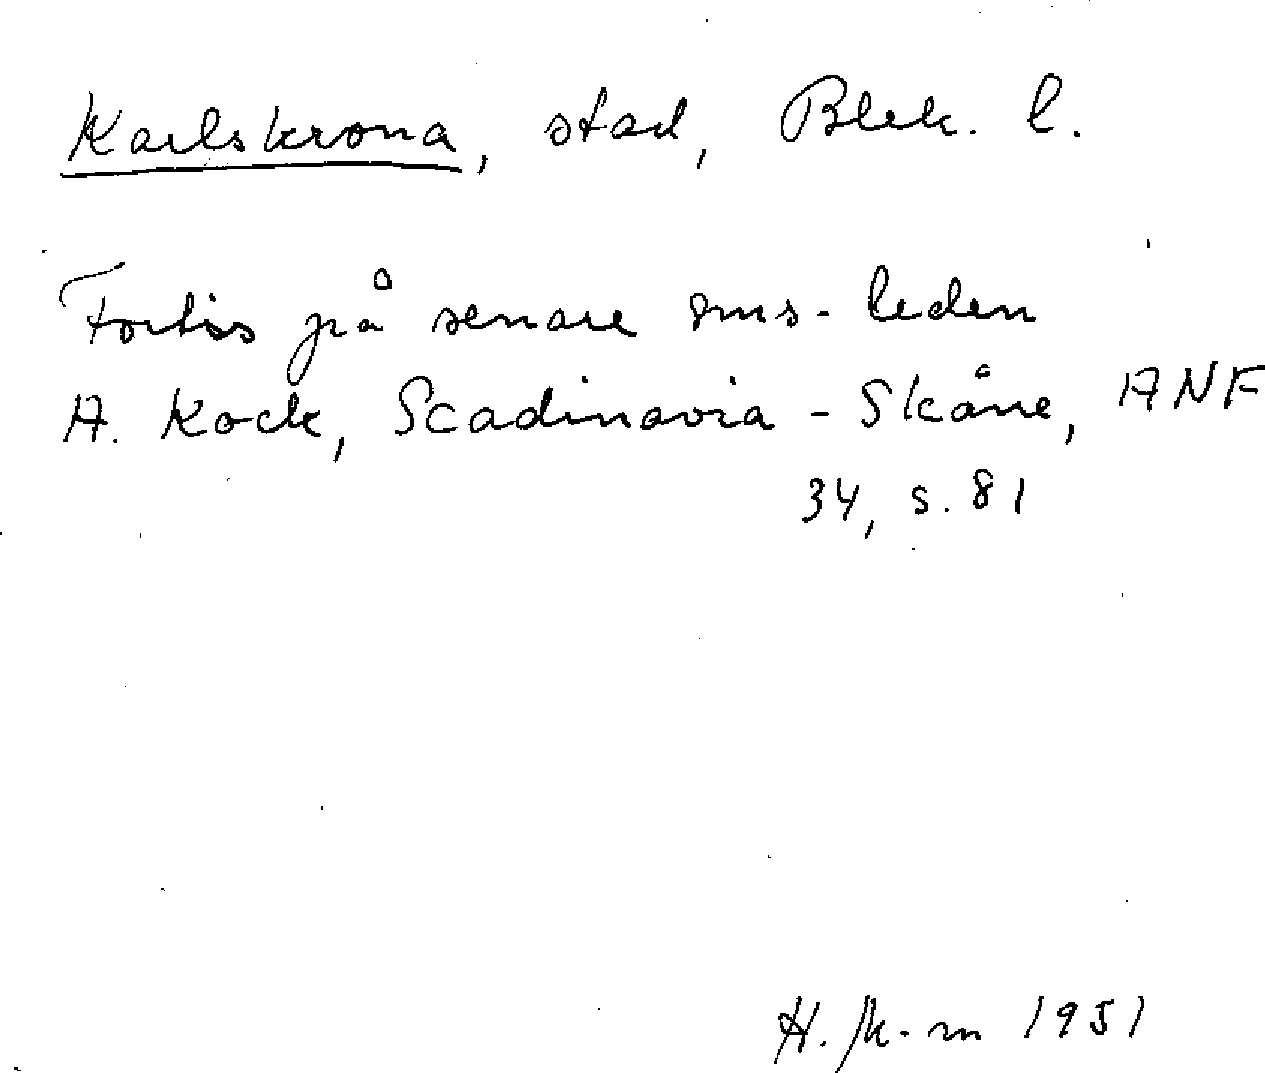 Karlskrona, stad, Blek. l.
Fortis på senare sms-leden
A. Kock, Scadinavia - Skåne, ANF
34, s. 81
H. 1951